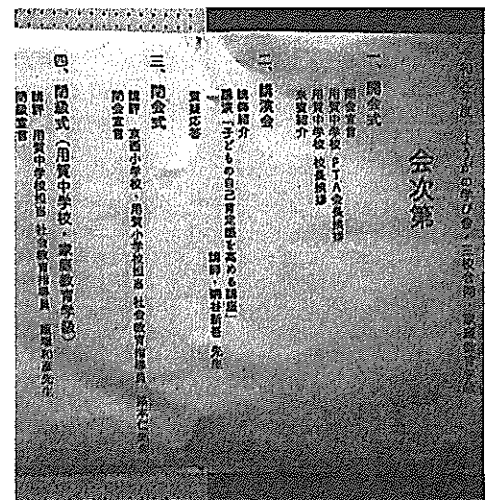 会次第
一、開会式
開会宣言
用賀中学校 PTA会長挨拶
用賀中学校 校長挨拶
来賓紹介
二、講演会
講師紹介
講演「子どもの自己肯定感を高める講座」
講師・ 先生
質疑応答
三、閉会式
講評 京西小学校・用賀小学校担当 社会教育指導員
閉会宣言
四、閉級式（用賀中学校・家庭教育学級）
講評 用賀中学校担当 社会教育指導員 先生
閉級宣言